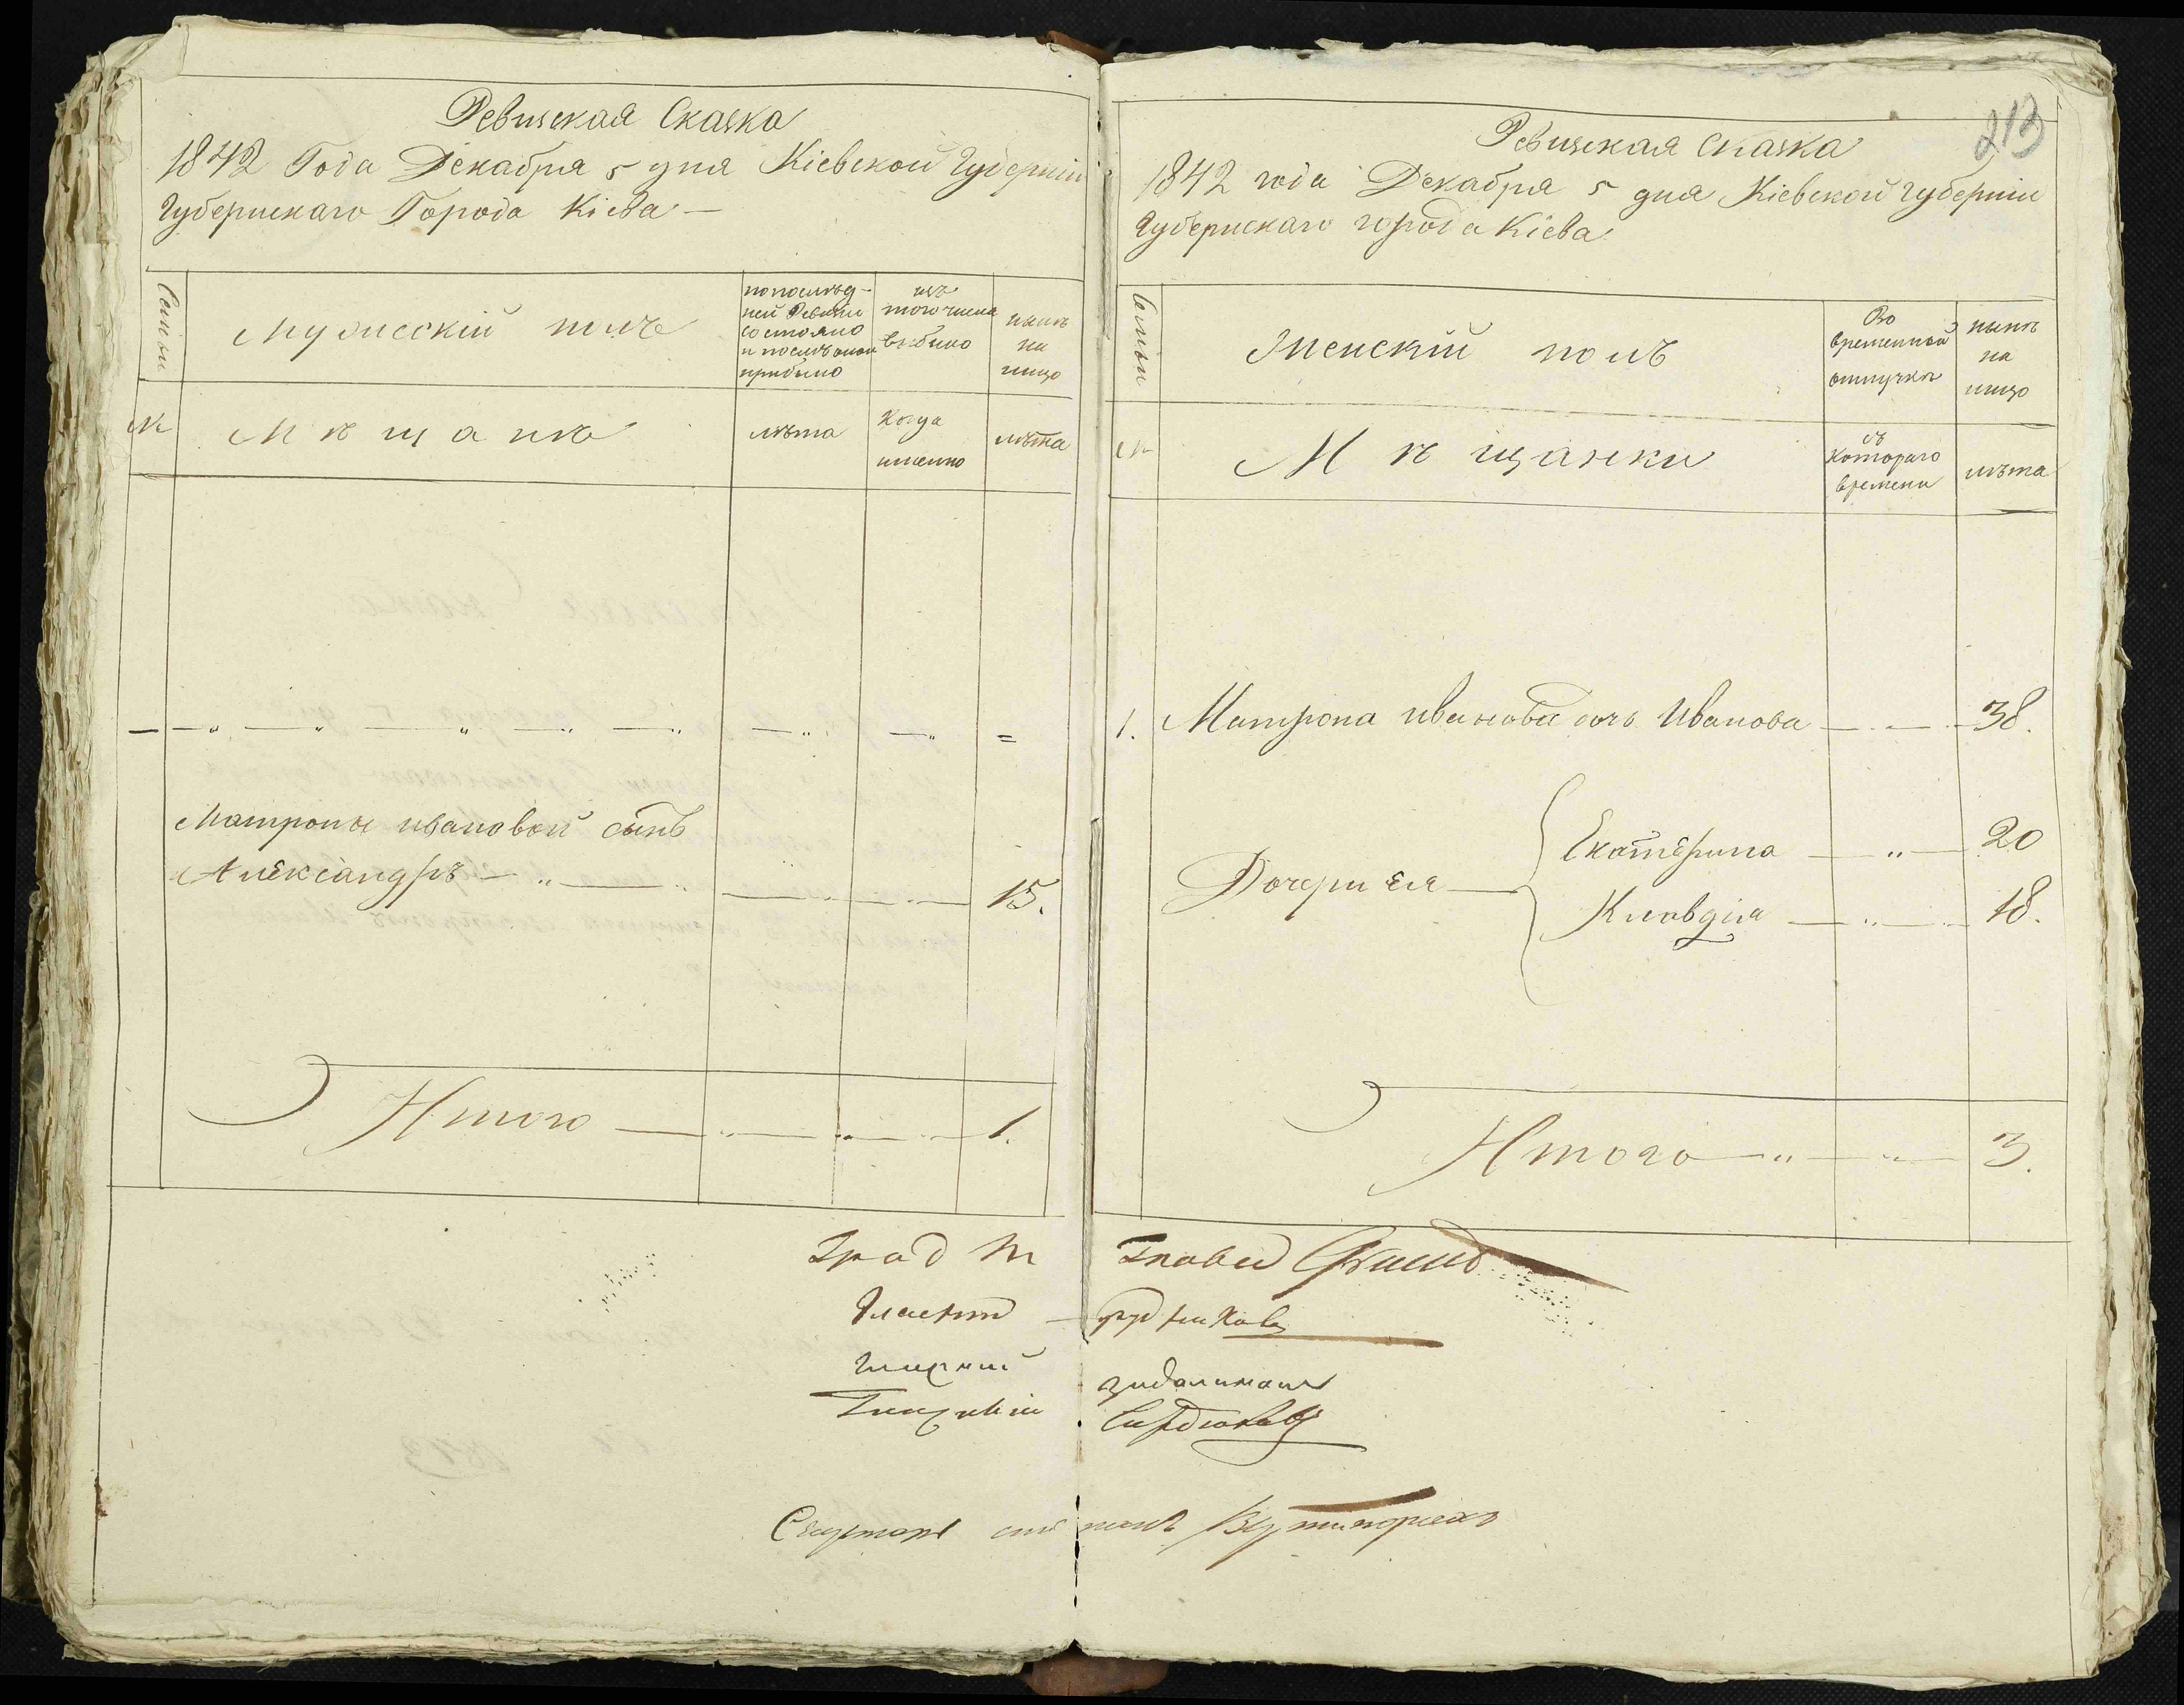 Ревизская Сказка
1842 Года Декабря 5 дня Кіевской Губерніи
Губернскаго Города Кіева —
Семьи
Мужескій полъ
по послѣд-
ней Ревизіи
состояло
и послѣ оной
прибыло
изъ
того числа
выбыло
нынѣ
на
лицо
№
Мѣщанѣ
лѣта
Когда
именно
лѣта
Матроны Ивановой сынъ
Александръ — 15.
Итого — 1.
213
Ревизская Сказка
1842 года Декабря 5 дня Кіевской губерніи
Губернскаго города Кіева
Семьи
Женскій полъ
Во
временной
отлучкѣ
нынѣ
на
лицо
№
Мѣщанки
съ
котораго
времени
лѣта
1. Матрона Иванова дочь Иванова — 38.
Дочери ея
Екатерина — 20
Клавдія — 18.
Итого — 3.
Град
Гласный
Гласный
Гласный
Секретарь